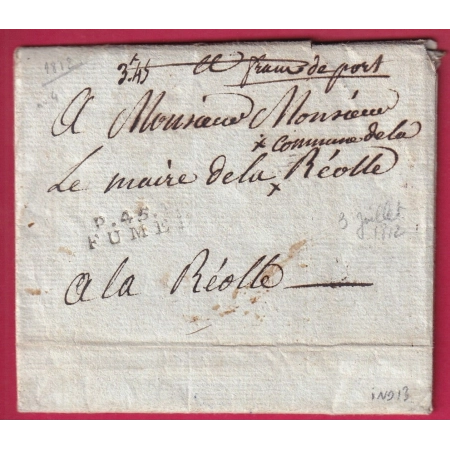 1812
franc de port
A Monsieur Monsieur
x commune de la
Le maire de la x Réolle
P. 45.
FUMEL
3 juillet
1812
a la Réolle
IND13